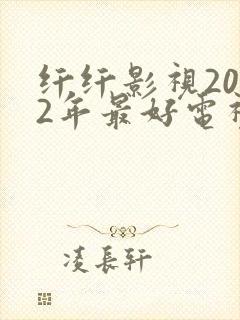 纤纤影視20
2年最好電視
凌長軒